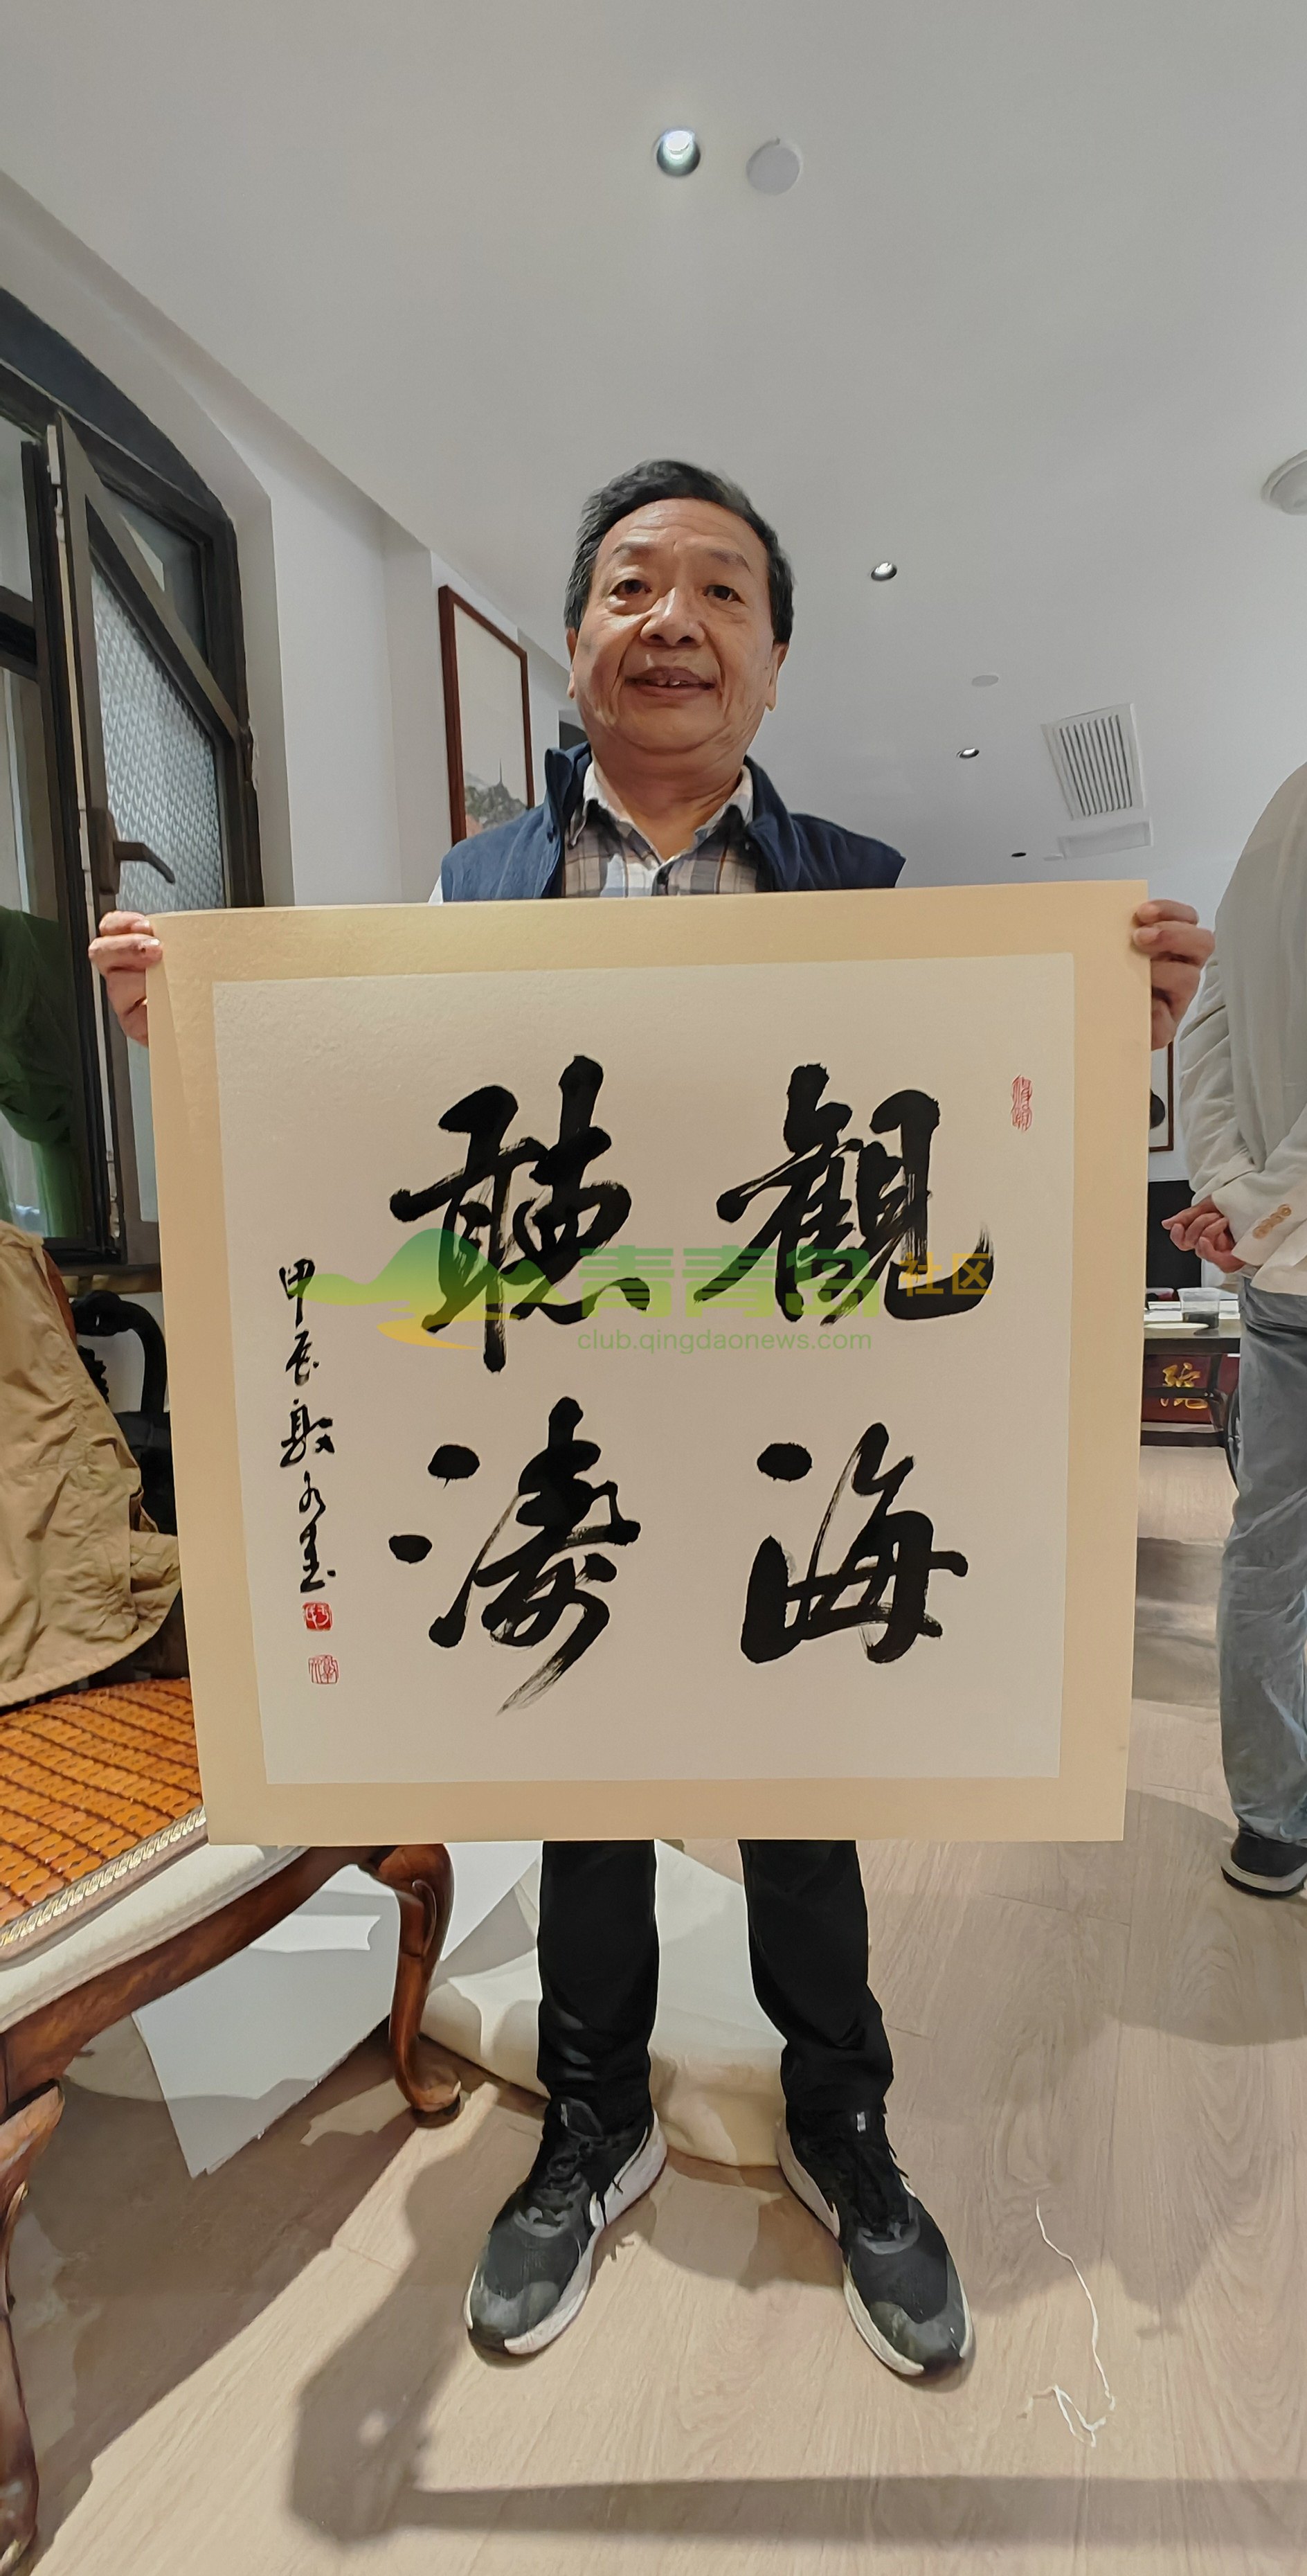 觀海
聽濤
甲辰敬久書
青青岛社区
club.qingdaonews.com
院